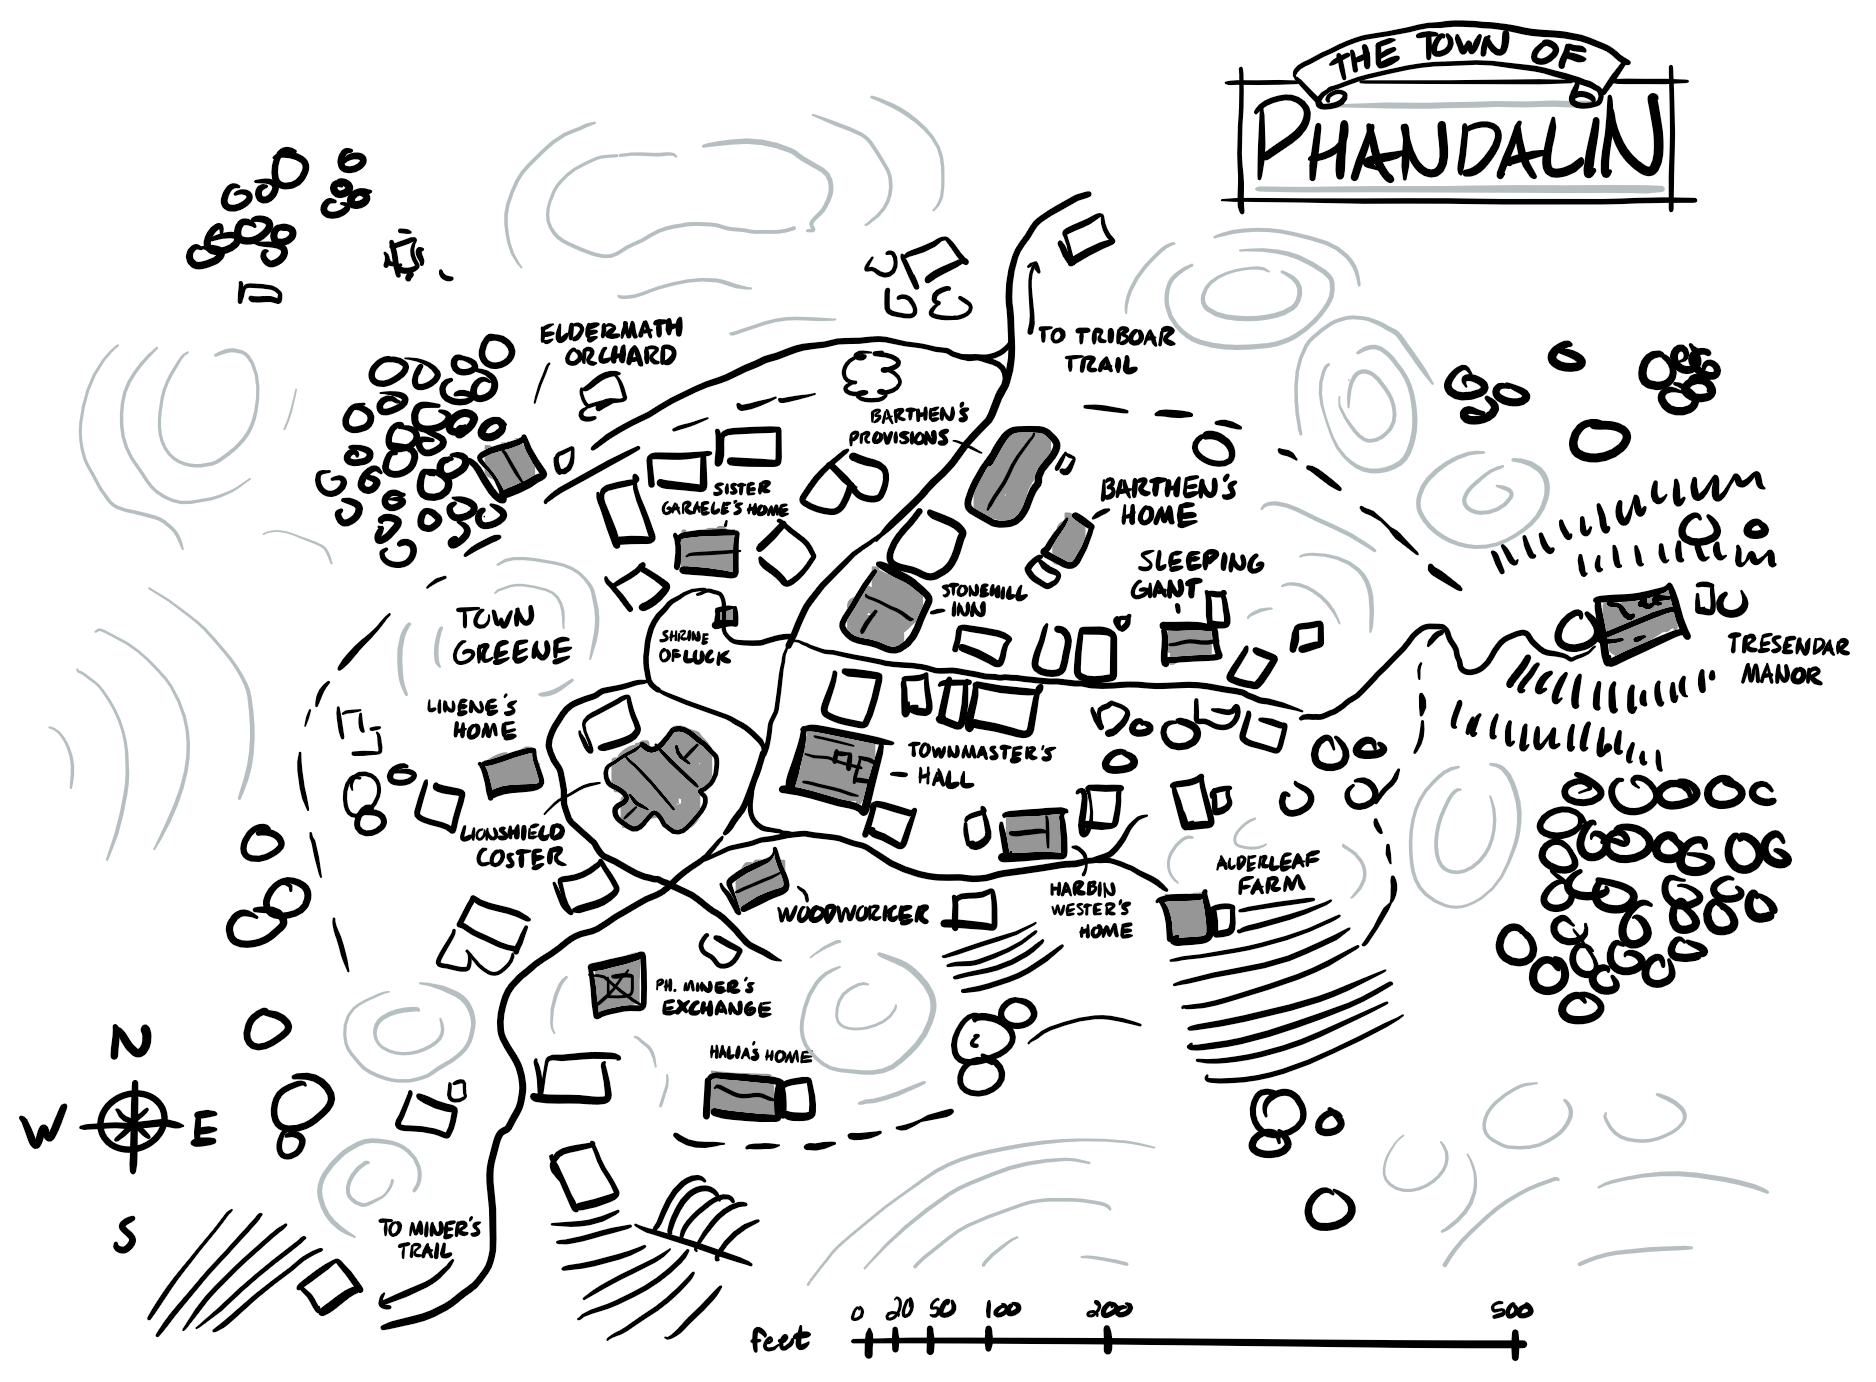 THE TOWN OF
PHANDALIN
TO TRIBOAR
TRAIL
ELDERMATH
ORCHARD
BARTHEN'S
PROVISIONS
SISTER
GARAELE'S HOME
BARTHEN'S
HOME
SLEEPING
GIANT
STONEHILL
INN
TOWN
GREENE
SHRINE
OF LUCK
TRESENDAR
MANOR
LINENE'S
HOME
TOWNMASTER'S
HALL
LIONSHIELD
COSTER
ALDERLEAF
FARM
HARBIN
WESTER'S
HOME
WOODWORKER
PH. MINER'S
EXCHANGE
HALIA'S HOME
N
W E
S
TO MINER'S
TRAIL
feet
0 20 50 100 200 500